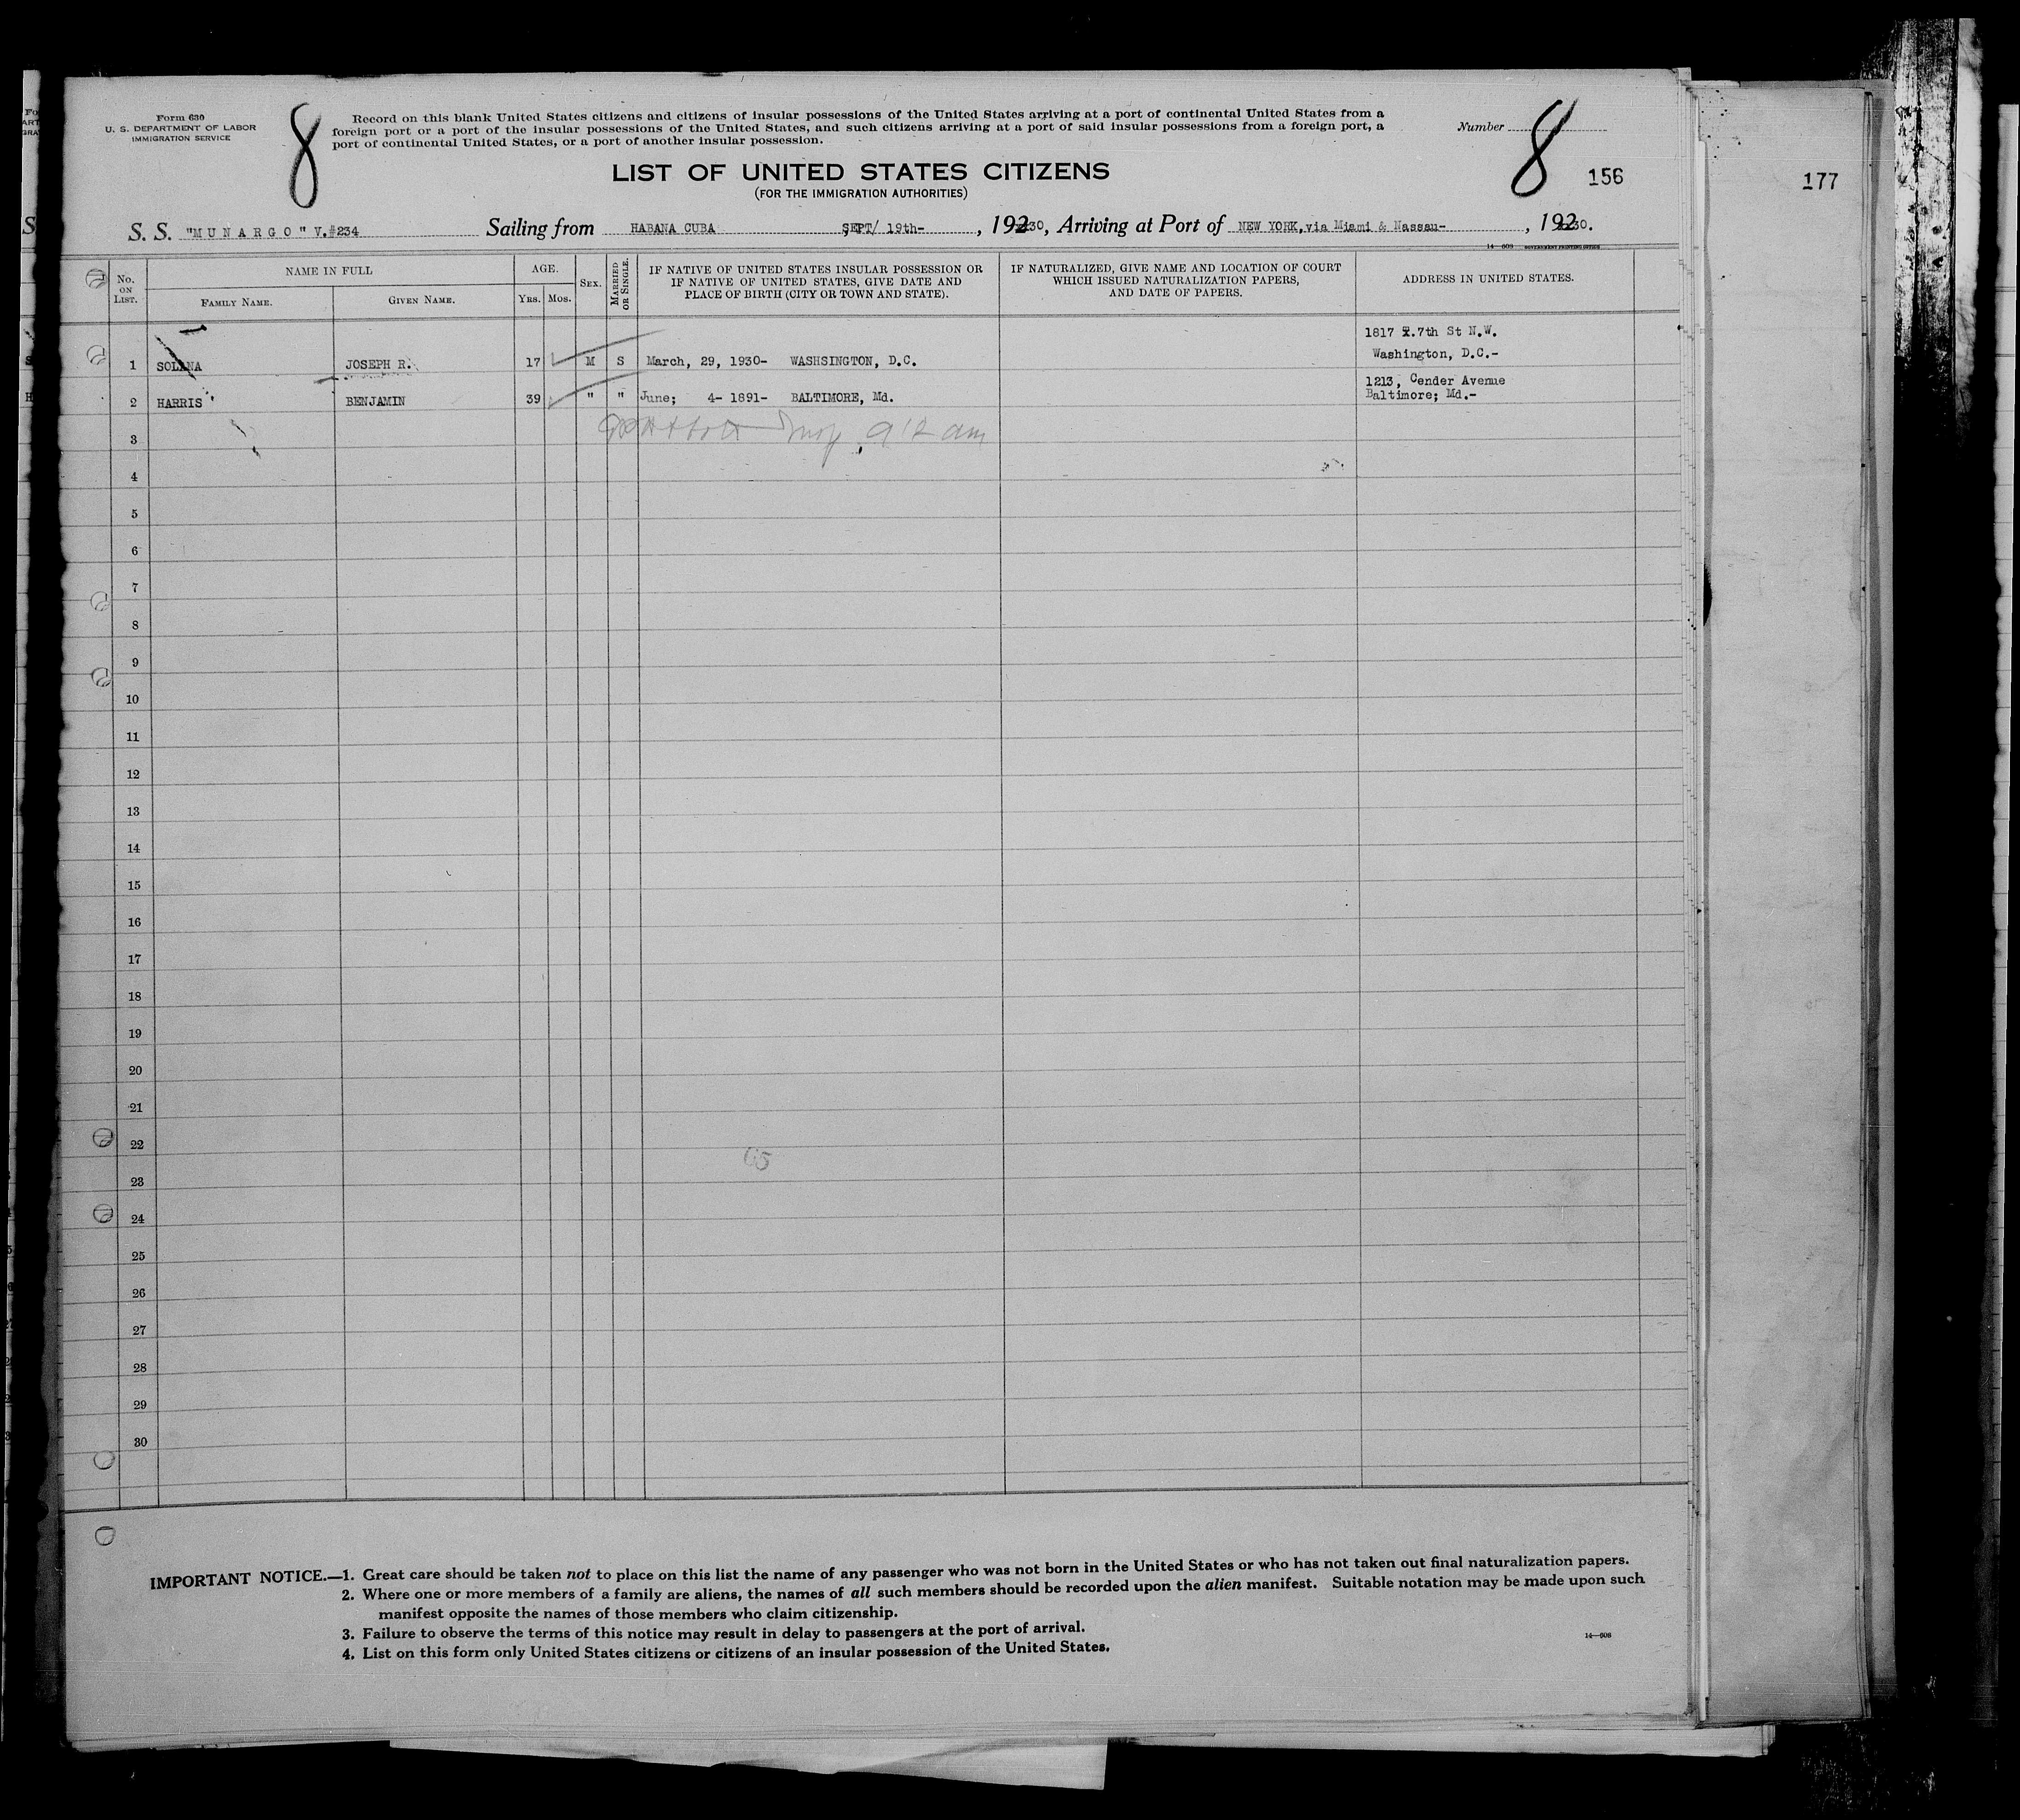 Form 630
U. S. DEPARTMENT OF LABOR
IMMIGRATION SERVICE
8
Record on this blank United States citizens and citizens of insular possessions of the United States arriving at a port of continental United States from a
foreign port or a port of the insular possessions of the United States, and such citizens arriving at a port of said insular possessions from a foreign port, a
port of continental United States, or a port of another insular possession.
Number
8
156
177
LIST OF UNITED STATES CITIZENS
(FOR THE IMMIGRATION AUTHORITIES)
S. S. "M U N A R G O" V.#234 Sailing from HABANA CUBA SEPT/ 19th- , 19230, Arriving at Port of NEW YORK,via Miami & Nassau- , 19230.
14—608 GOVERNMENT PRINTING OFFICE
No. ON LIST. NAME IN FULL AGE. SEX. MARRIED OR SINGLE. IF NATIVE OF UNITED STATES INSULAR POSSESSION OR IF NATIVE OF UNITED STATES, GIVE DATE AND PLACE OF BIRTH (CITY OR TOWN AND STATE). IF NATURALIZED, GIVE NAME AND LOCATION OF COURT WHICH ISSUED NATURALIZATION PAPERS, AND DATE OF PAPERS. ADDRESS IN UNITED STATES.
FAMILY NAME. GIVEN NAME. YRS. MOS.
1817 7th St N.W.
1 SOLANA JOSEPH R. 17 M S March, 29, 1930- WASHSINGTON, D.C. Washington, D.C.-
1213, Cender Avenue
2 HARRIS BENJAMIN 39 " " June; 4- 1891- BALTIMORE, Md. Baltimore; Md.-
3
4
5
6
7
8
9
10
11
12
13
14
15
16
17
18
19
20
21
22
65
23
24
25
26
27
28
29
30
IMPORTANT NOTICE.—1. Great care should be taken not to place on this list the name of any passenger who was not born in the United States or who has not taken out final naturalization papers.
2. Where one or more members of a family are aliens, the names of all such members should be recorded upon the alien manifest. Suitable notation may be made upon such
manifest opposite the names of those members who claim citizenship.
3. Failure to observe the terms of this notice may result in delay to passengers at the port of arrival.
4. List on this form only United States citizens or citizens of an insular possession of the United States.
14—608